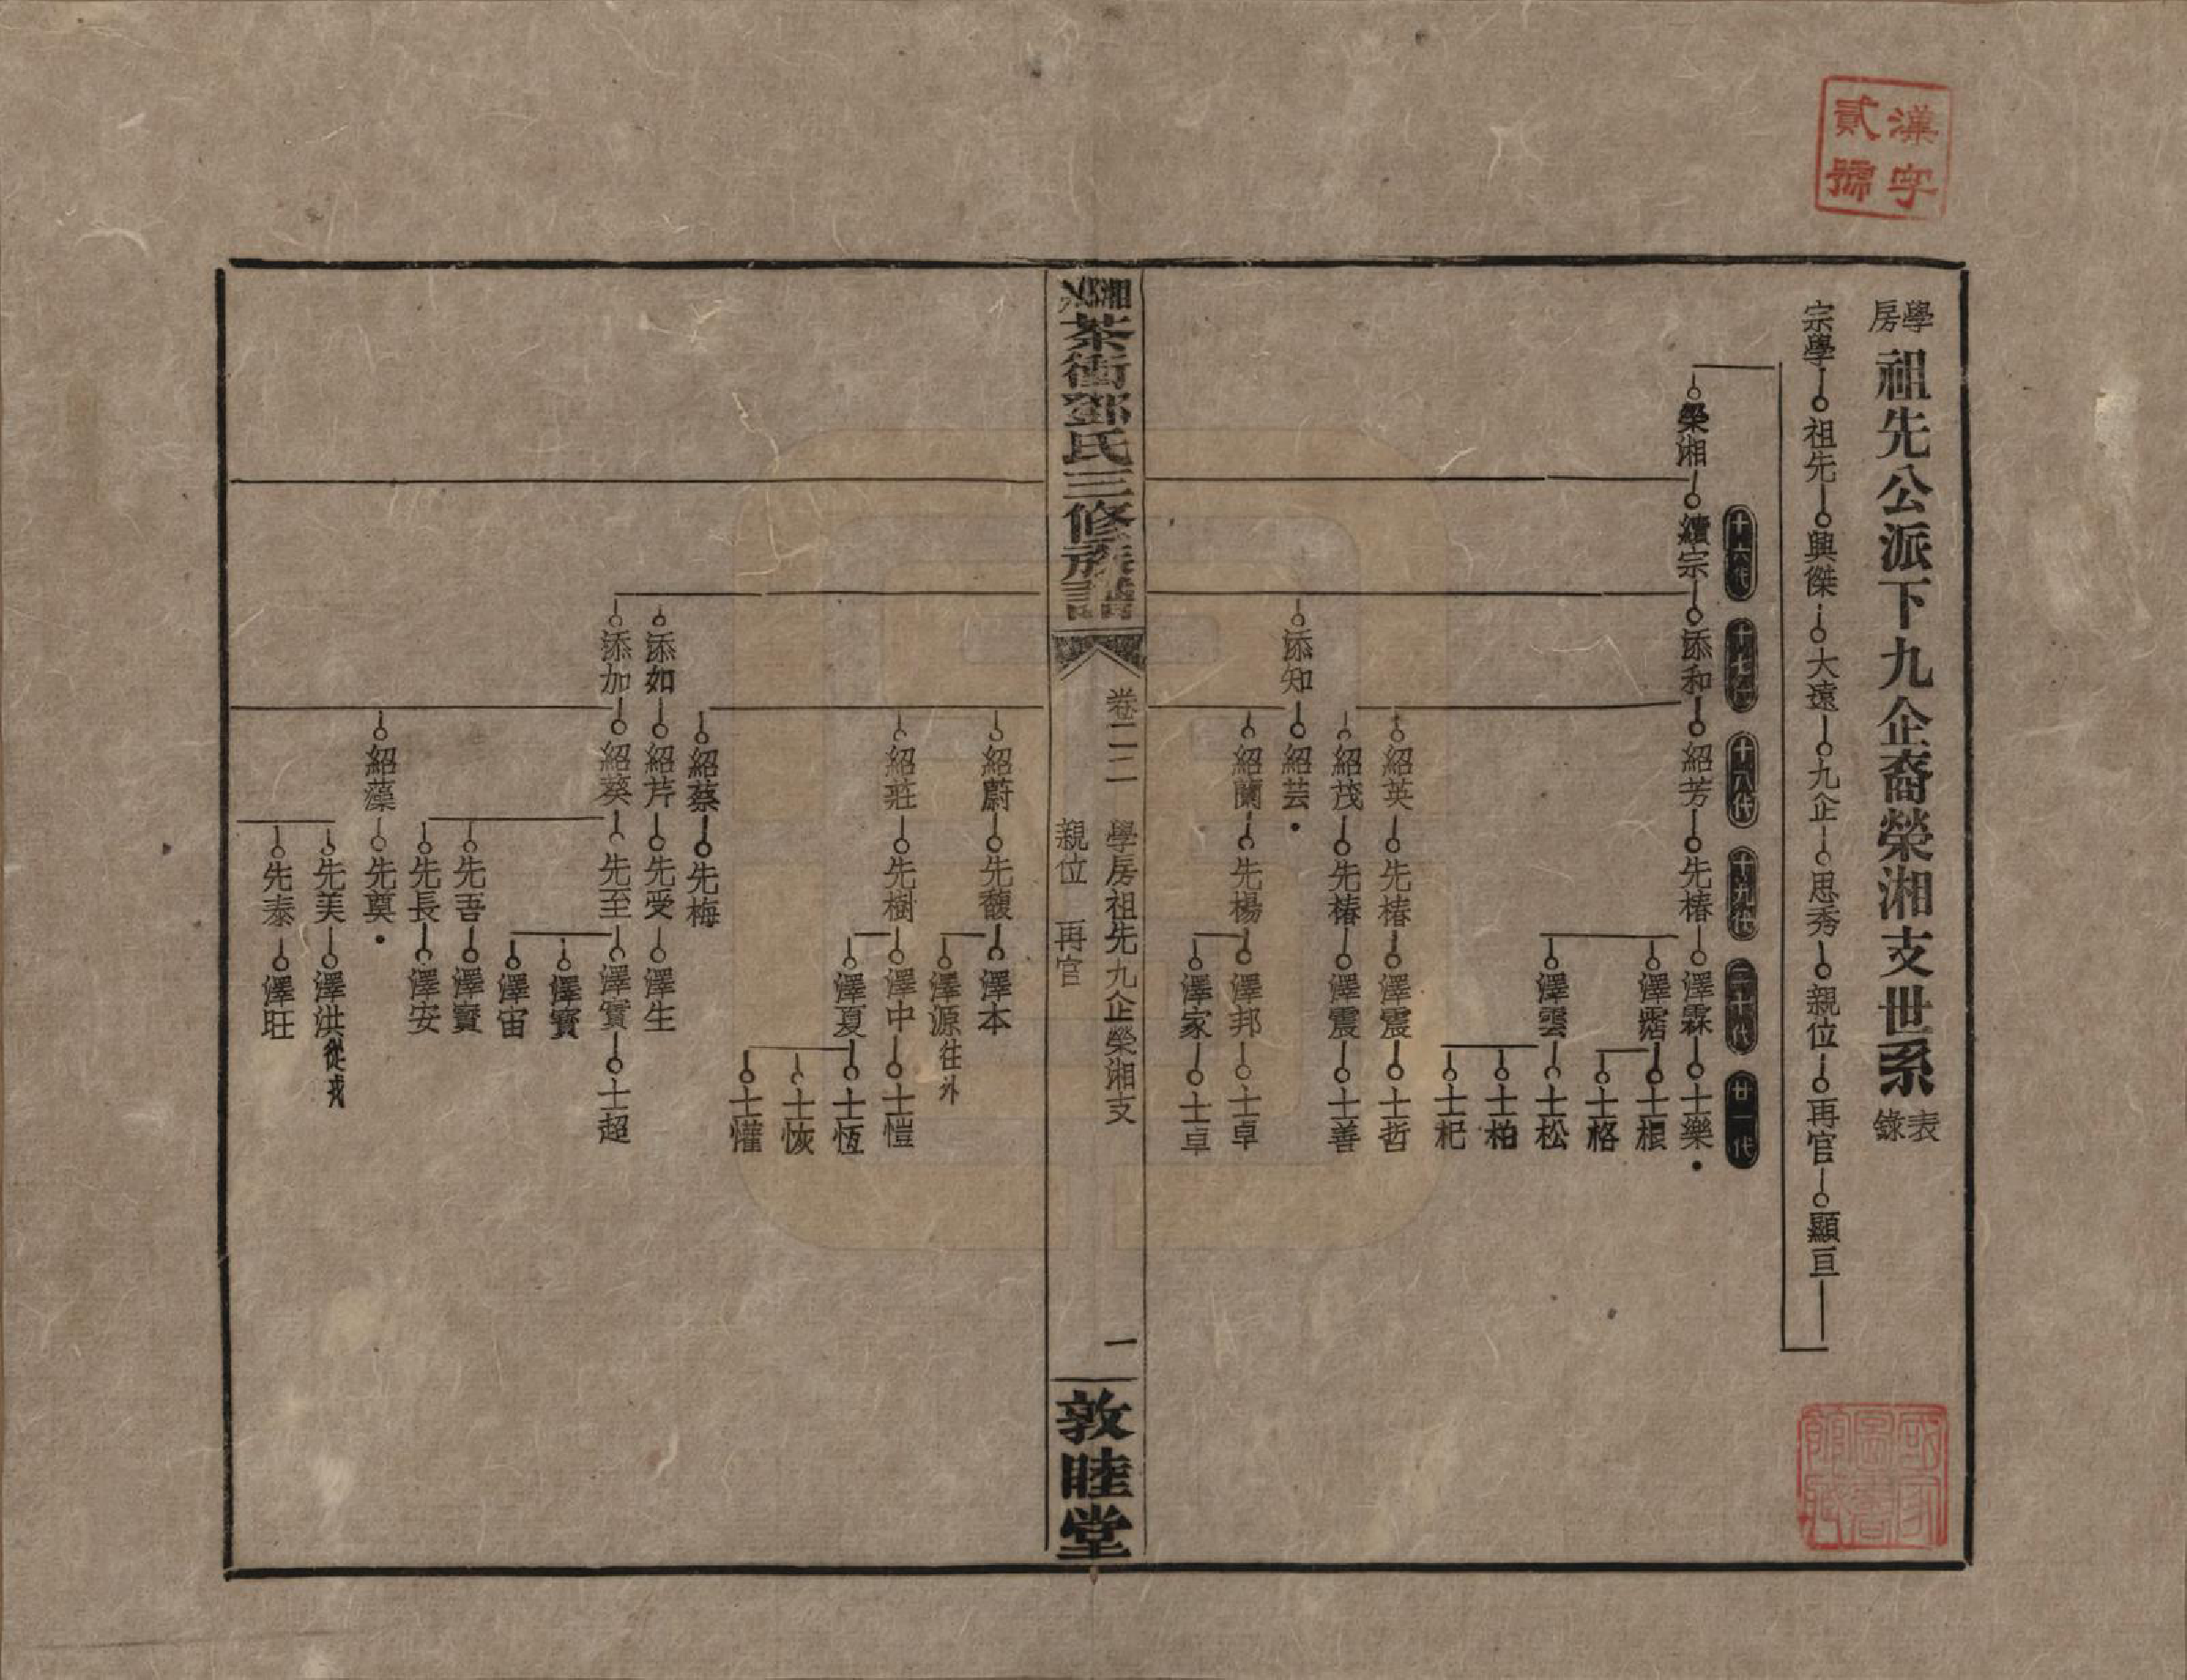 漢字
貳號
學房 祖先公派下九企裔榮湘支世系 表錄
宗學 祖先 興傑 大遠 九企 思秀 親位 再官 顯亘
十六代 十七代 十八代 十九代 二十代 廿一代
榮湘 續宗 添和 紹芳 先椿 澤霖 士樂
澤霑 士根
士格
澤雲 士松
士柏
士杞
紹英 先椿 澤震 士哲
紹茂 先椿 澤震 士善
添知 紹芸
紹蘭 先楊 澤邦 士卓
澤家 士卓
湘鄉茶衝鄧氏三修族譜
卷二二 學房祖先九企榮湘支
親位 再官
一
敦睦堂
紹蔚 先馥 澤本
澤源 往外
紹莊 先樹 澤中 士愷
澤夏 士恆
士恢
士懽
紹蔡 先梅
添如 紹芹 先受 澤生
添加 紹葵 先至 澤實 士超
澤賓
澤宙
先吾 澤寶
先長 澤安
紹藻 先奠
先美 澤洪 從戎
先泰 澤旺
國家圖書館藏